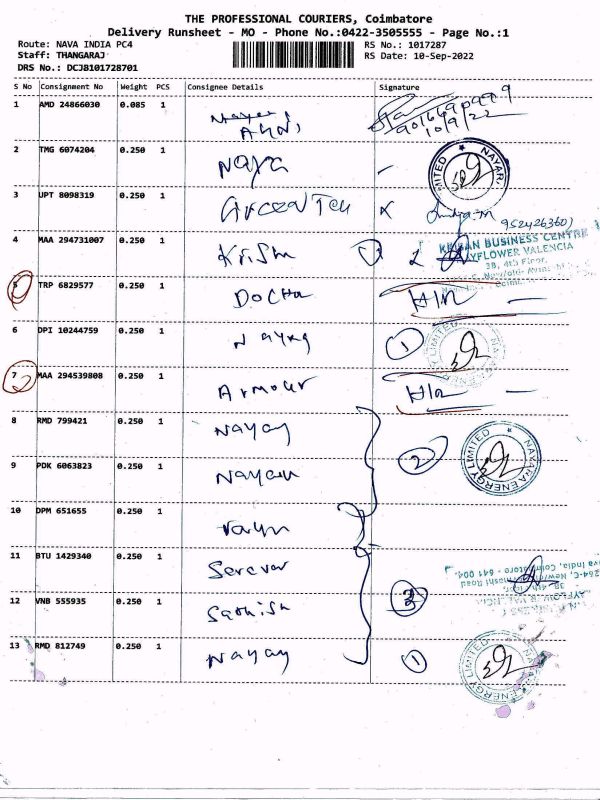 THE PROFESSIONAL COURIERS, Coimbatore
Delivery Runsheet - MO - Phone No.:0422-3505555 - Page No.:1
Route: NAVA INDIA PC4 RS No.: 1017287
Staff: THANGARAJ RS Date: 10-Sep-2022
DRS No.: DCJB101728701
S No Consignment No Weight PCS Consignee Details Signature
1 AMD 24866030 0.085 1
10/9/22
2 TMG 6074204 0.250 1 Naya
3 UPT 8098319 0.250 1 Green Tech
4 MAA 294731007 0.250 1 Krish
KEIBAN BUSINESS CENTRE
MAYFLOWER VALENCIA
3B, 4th Floor,
5 TRP 6829577 0.250 1 Docha
6 DPI 10244759 0.250 1 Nayag 1
7 MAA 294539808 0.250 1 Armour
8 RMD 799421 0.250 1 Nayag
NAYARA ENERGY LIMITED
2
9 PDK 6063823 0.250 1 Nayan
10 DPM 651655 0.250 1
11 BTU 1429340 0.250 1 Serever
12 VNB 555935 0.250 1 Sathish 3
13 RMD 812749 0.250 1 Nayag 1
NAYARA ENERGY LIMITED